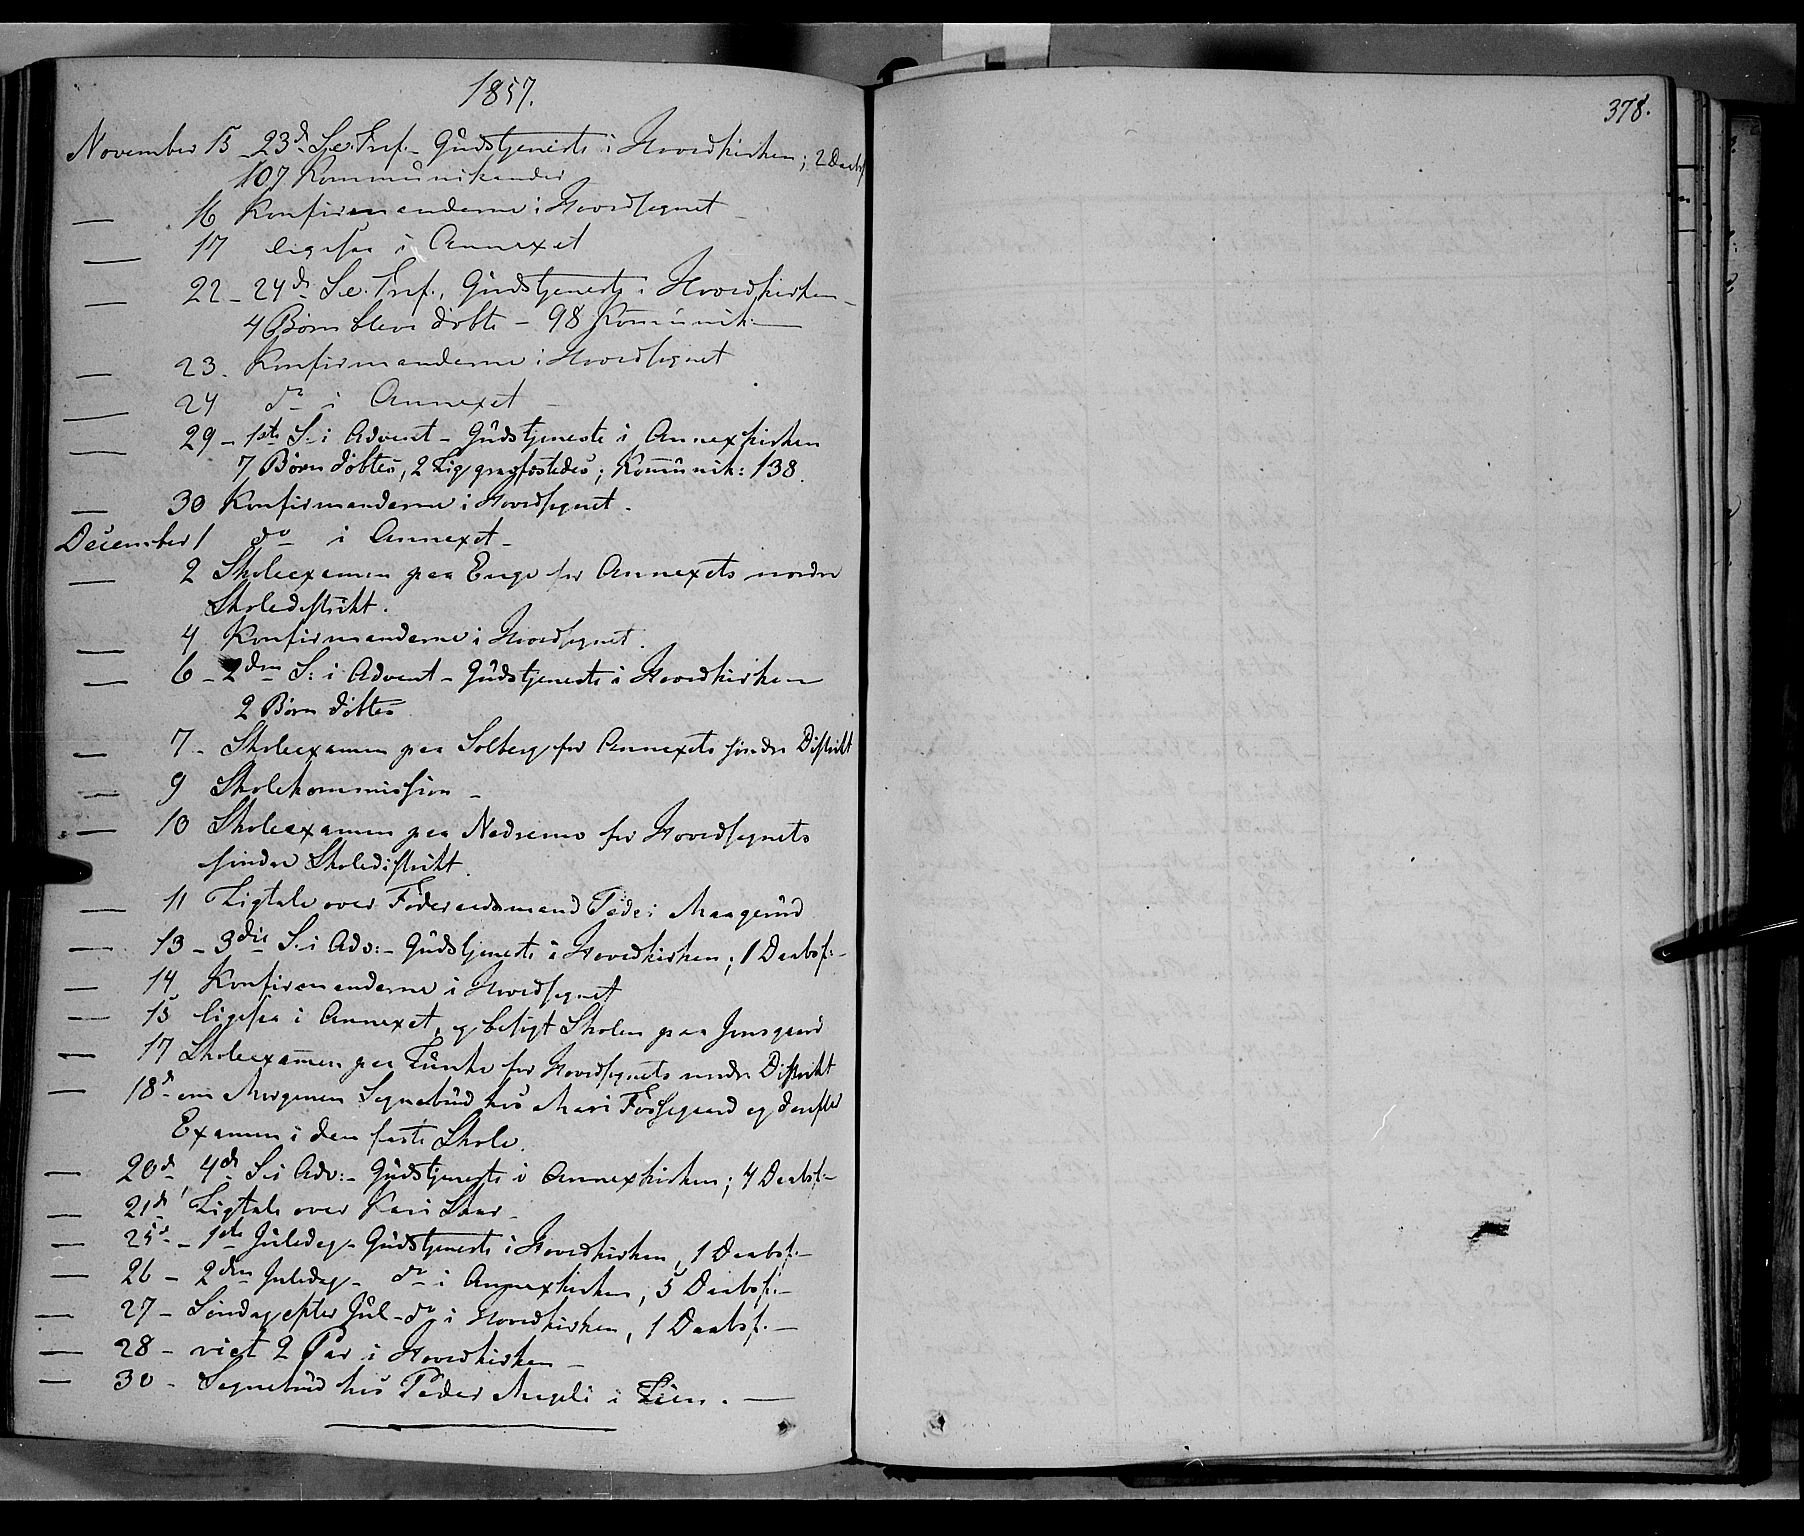 1857.
378.
November 15 - 23d S. e. Tref. - Gudstjeneste i Hovedkirken; 2 Daabsf
107 Kommunikander
— 16 Konfirmanderne i Hovedsognet -
— 17 ligesaa i Annexet
— 22 - 24d S. e. Tref., Gudstjeneste i Hovedkirken -
4 Børn bleve døbte - 98 Kommunik. —
— 23. Konfirmanderne i Hovedsognet
— 24 do i Annexet -
— 29 - 1ste S. i Advent - Gudstjeneste i Annexkirken
7 Børn døbtes, 2 Lig grafæstedes; Kommunik: 138.
— 30 Konfirmanderne i Hovedsognet.
December 1 do i Annexet -
— 2 Skoleexamen paa Enge for Annexets nordre
Skoledistrikt.
— 4 Konfirmanderne i Hovedsognet.
— 6 - 2den S: i Advent - Gudstjeneste i Hovedkirken
2 Børn døbtes
— 7 - Skoleexamen paa Solberg for Annexets søndre Distrikt
— 9 Skolekommission -
— 10 Skoleexamen paa Nedremo for Hovedsognets
søndre Skoledistrikt.
— 11 Ligtale over Føderaadsmand Peder Maagerud
— 13 - 3die S. i Adv: - Gudstjeneste i Hovedkirken; 1 Daabsf: -
— 14 Konfirmanderne i Hovedsognet
— 15 ligesaa i Annexet, og besøgt Skolen paa Jensgaard
— 17 Skoleexamen paa Lunke for Hovedsognets nordre Distrikt
— 18d om Morgenen Sognebud hos Mari Fossegaard og derefter
Examen i den faste Skole.
— 20d 4d S. i Adv: - Gudstjeneste i Annexkirken; 4 Daabsf. -
— 21d Ligtale over Kari Skar -
— 25d - 1ste Juledag - Gudstjeneste i Hovedkirken, 1 Daabsf. -
— 26 - 2den Juledag - do i Annexkirken, 5 Daabsf. -
— 27 - Søndag efter Jul - do i Hovedkirken, 1 Daabsf. —
— 28 - viet 2 Par i Hovedkirken -
— 30 - Sognebud hos Peder i Lien. —